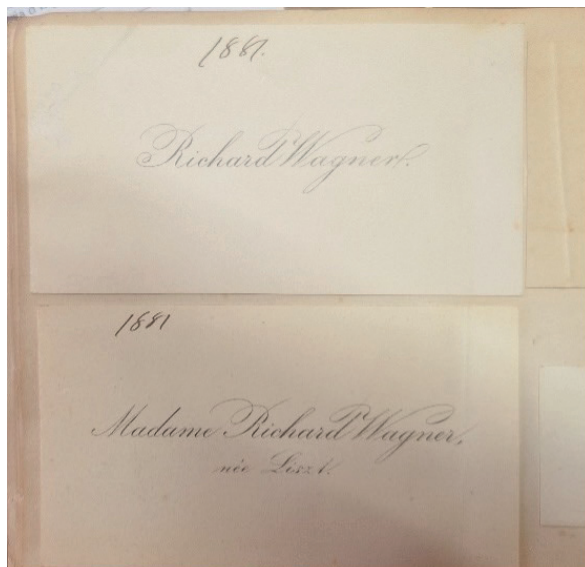 1881.
Richard Wagner.
1881
Madame Richard Wagner,
née Liszt.